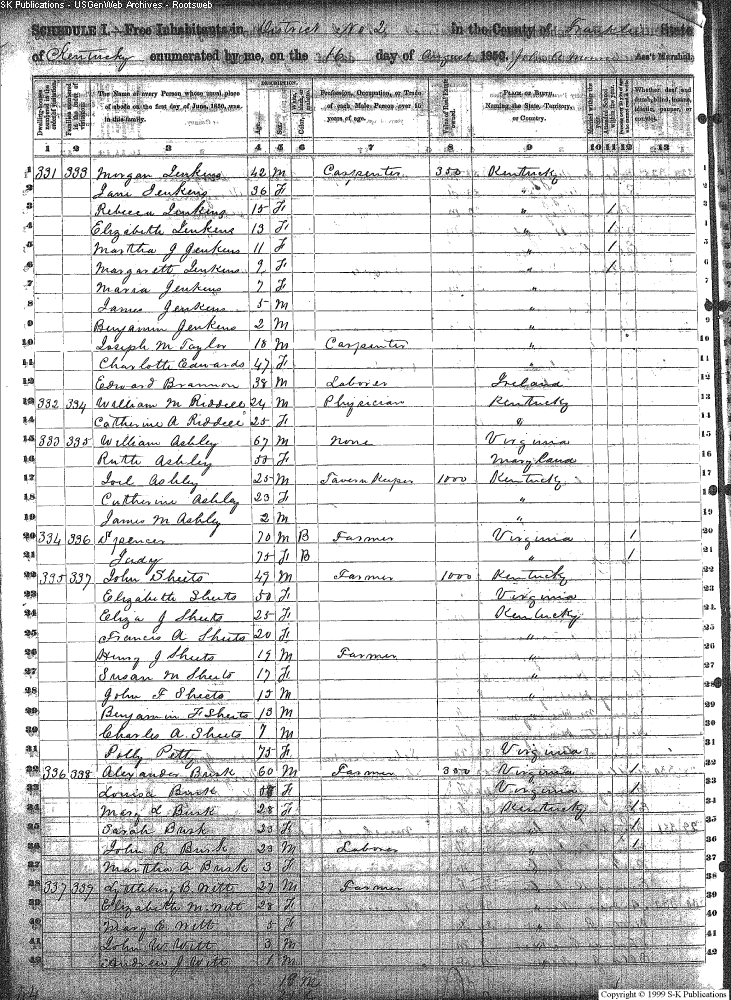 SK Publications - USGenWeb Archives - Rootsweb
SCHEDULE I.—Free Inhabitants in District No 2 in the County of Franklin State
of Kentucky enumerated by me, on the 16 day of August 1850. John A Ass't Marshal.
DESCRIPTION.
The Name of every Person whose usual place of abode on the first day of June, 1850, was in this family.
Age.
Sex.
Profession, Occupation, or Trade of each Male Person over 15 years of age.
Value of Real Estate owned.
PLACE OF BIRTH. Naming the State, Territory, or Country.
Whether deaf and dumb, blind, insane, idiotic, pauper, or convict.
1 2 3 4 5 6 7 8 9 10 11 12 13
1 331 333 Morgan Jenkins 42 M Carpenter 350 Kentucky 1
2 Jane Jenkins 36 F " 2
3 Rebecca Jenkins 15 F " 1 3
4 Elizabeth Jenkins 13 F " 1 4
5 Marttha J Jenkins 11 F " 1 5
6 Margarett Jenkins 9 F " 1 6
7 Maria Jenkins 7 F " 7
8 James Jenkins 5 M " 8
9 Benjamin Jenkins 2 M " 9
10 Joseph M Taylor 18 M Carpenter " 10
11 Charlotte Edwards 47 F " 11
12 Edward Brannon 38 M Laborer Ireland 12
13 332 334 William M Riddell 24 M Physician Kentucky 13
14 Catherine A Riddell 25 F " 14
15 333 335 William Ashley 67 M None Virginia 15
16 Ruth Ashley F Maryland 16
17 Joel Ashley 25 M Tavern Keeper 1000 Kentucky 17
18 Catherine Ashley 23 F " 18
19 James M Ashley 2 M " 19
20 334 336 Spencer 70 M B Farmer Virginia 1 20
21 Judy 75 F B " 1 21
22 335 337 John Sheets 49 M Farmer 1000 Kentucky 22
23 Elizabeth Sheets 50 F Virginia 23
24 Eliza J Sheets 25 F Kentucky 24
25 Francis A Sheets 20 F " 25
26 Henry J Sheets 19 M Farmer " 26
27 Susan M Sheets 17 F " 27
28 John F Sheets 15 M " 28
29 Benjamin F Sheets 13 M " 29
30 Charles A Sheets 7 M " 30
31 Polly Petty 75 F Virginia 31
32 336 338 Alexander Busk 60 M Farmer 300 Virginia 1
33 Louisa Busk F Virginia 1
34 Mary L Busk 28 F Kentucky 1
35 Sarah Busk 23 F " 1
36 John R Busk 23 M Laborer " 1
37 Marttha A Busk 3 F "
38 337 339 Lyttleburg B Witt 27 M Farmer "
39 Elizabeth M Witt 28 F "
40 Mary E Witt 5 F "
41 John W Witt 3 M "
42 Andrew J Witt 1 M "
Copyright © 1999 S-K Publications